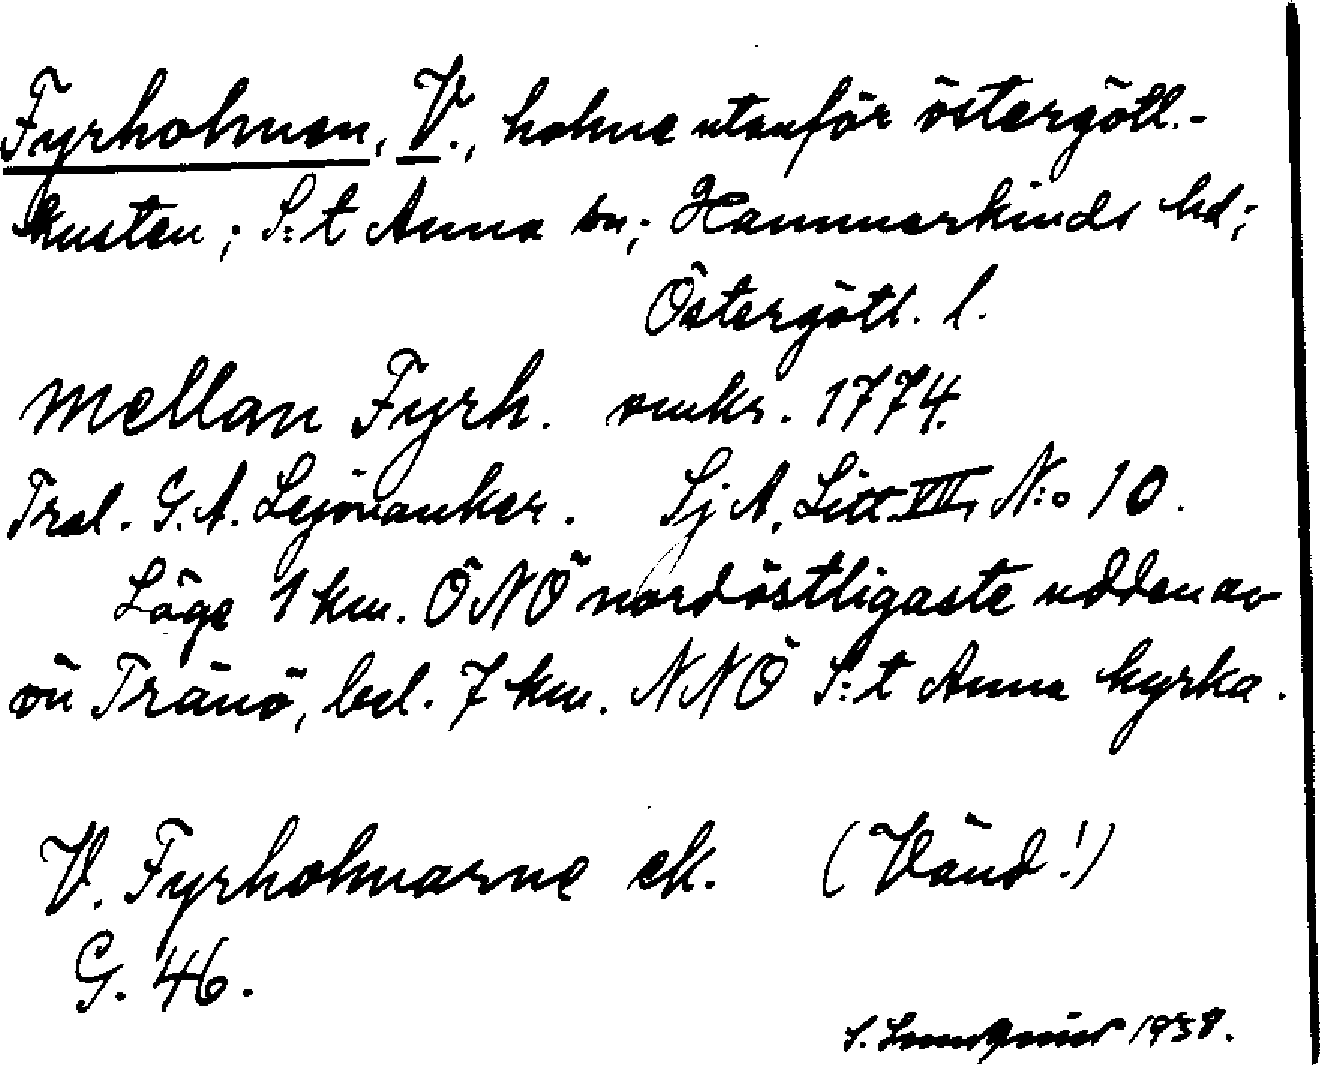 Fyrholmen, V., holme utanför östergötl.-
kusten; S:t Anna sn; Hammarkinds hd;
Östergötl. l.
Mellan Fyrh. omkr. 1774.
Tral. G. A. Lejonanker. Sj A, Litt. VIII, N:o 10.
Läge 1 km. ÖNÖ nordöstligaste udden av
ön Tränö, bel. 7 km. NNÖ S:t Anna kyrka.
V. Fyrholmarne ek. (Vänd!)
G. 46.
S. 1938.